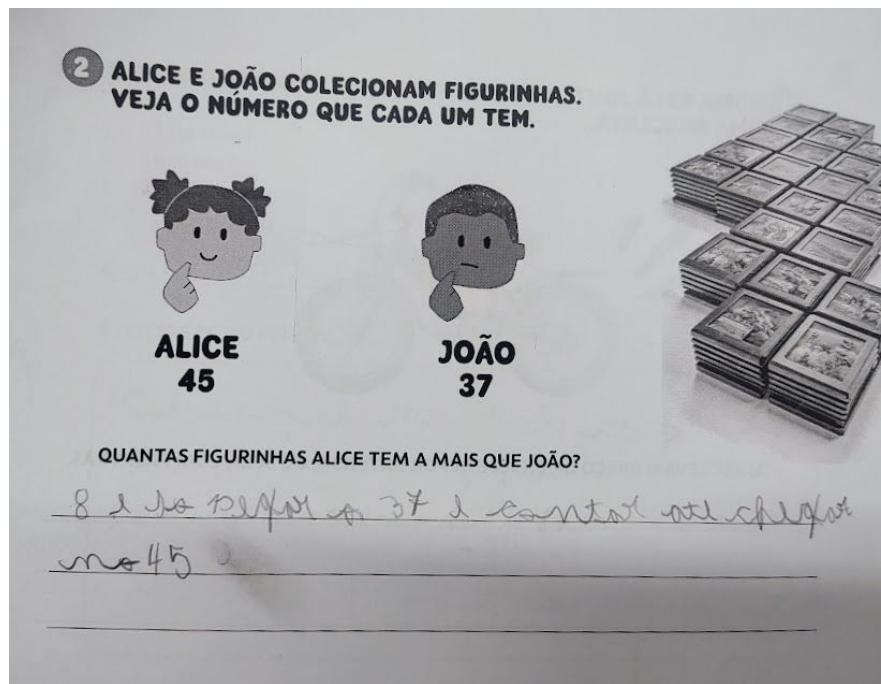 2 ALICE E JOÃO COLECIONAM FIGURINHAS.
VEJA O NÚMERO QUE CADA UM TEM.
ALICE
45
JOÃO
37
QUANTAS FIGURINHAS ALICE TEM A MAIS QUE JOÃO?
8 e so pegar o 37 e contar ate chegar
no 45